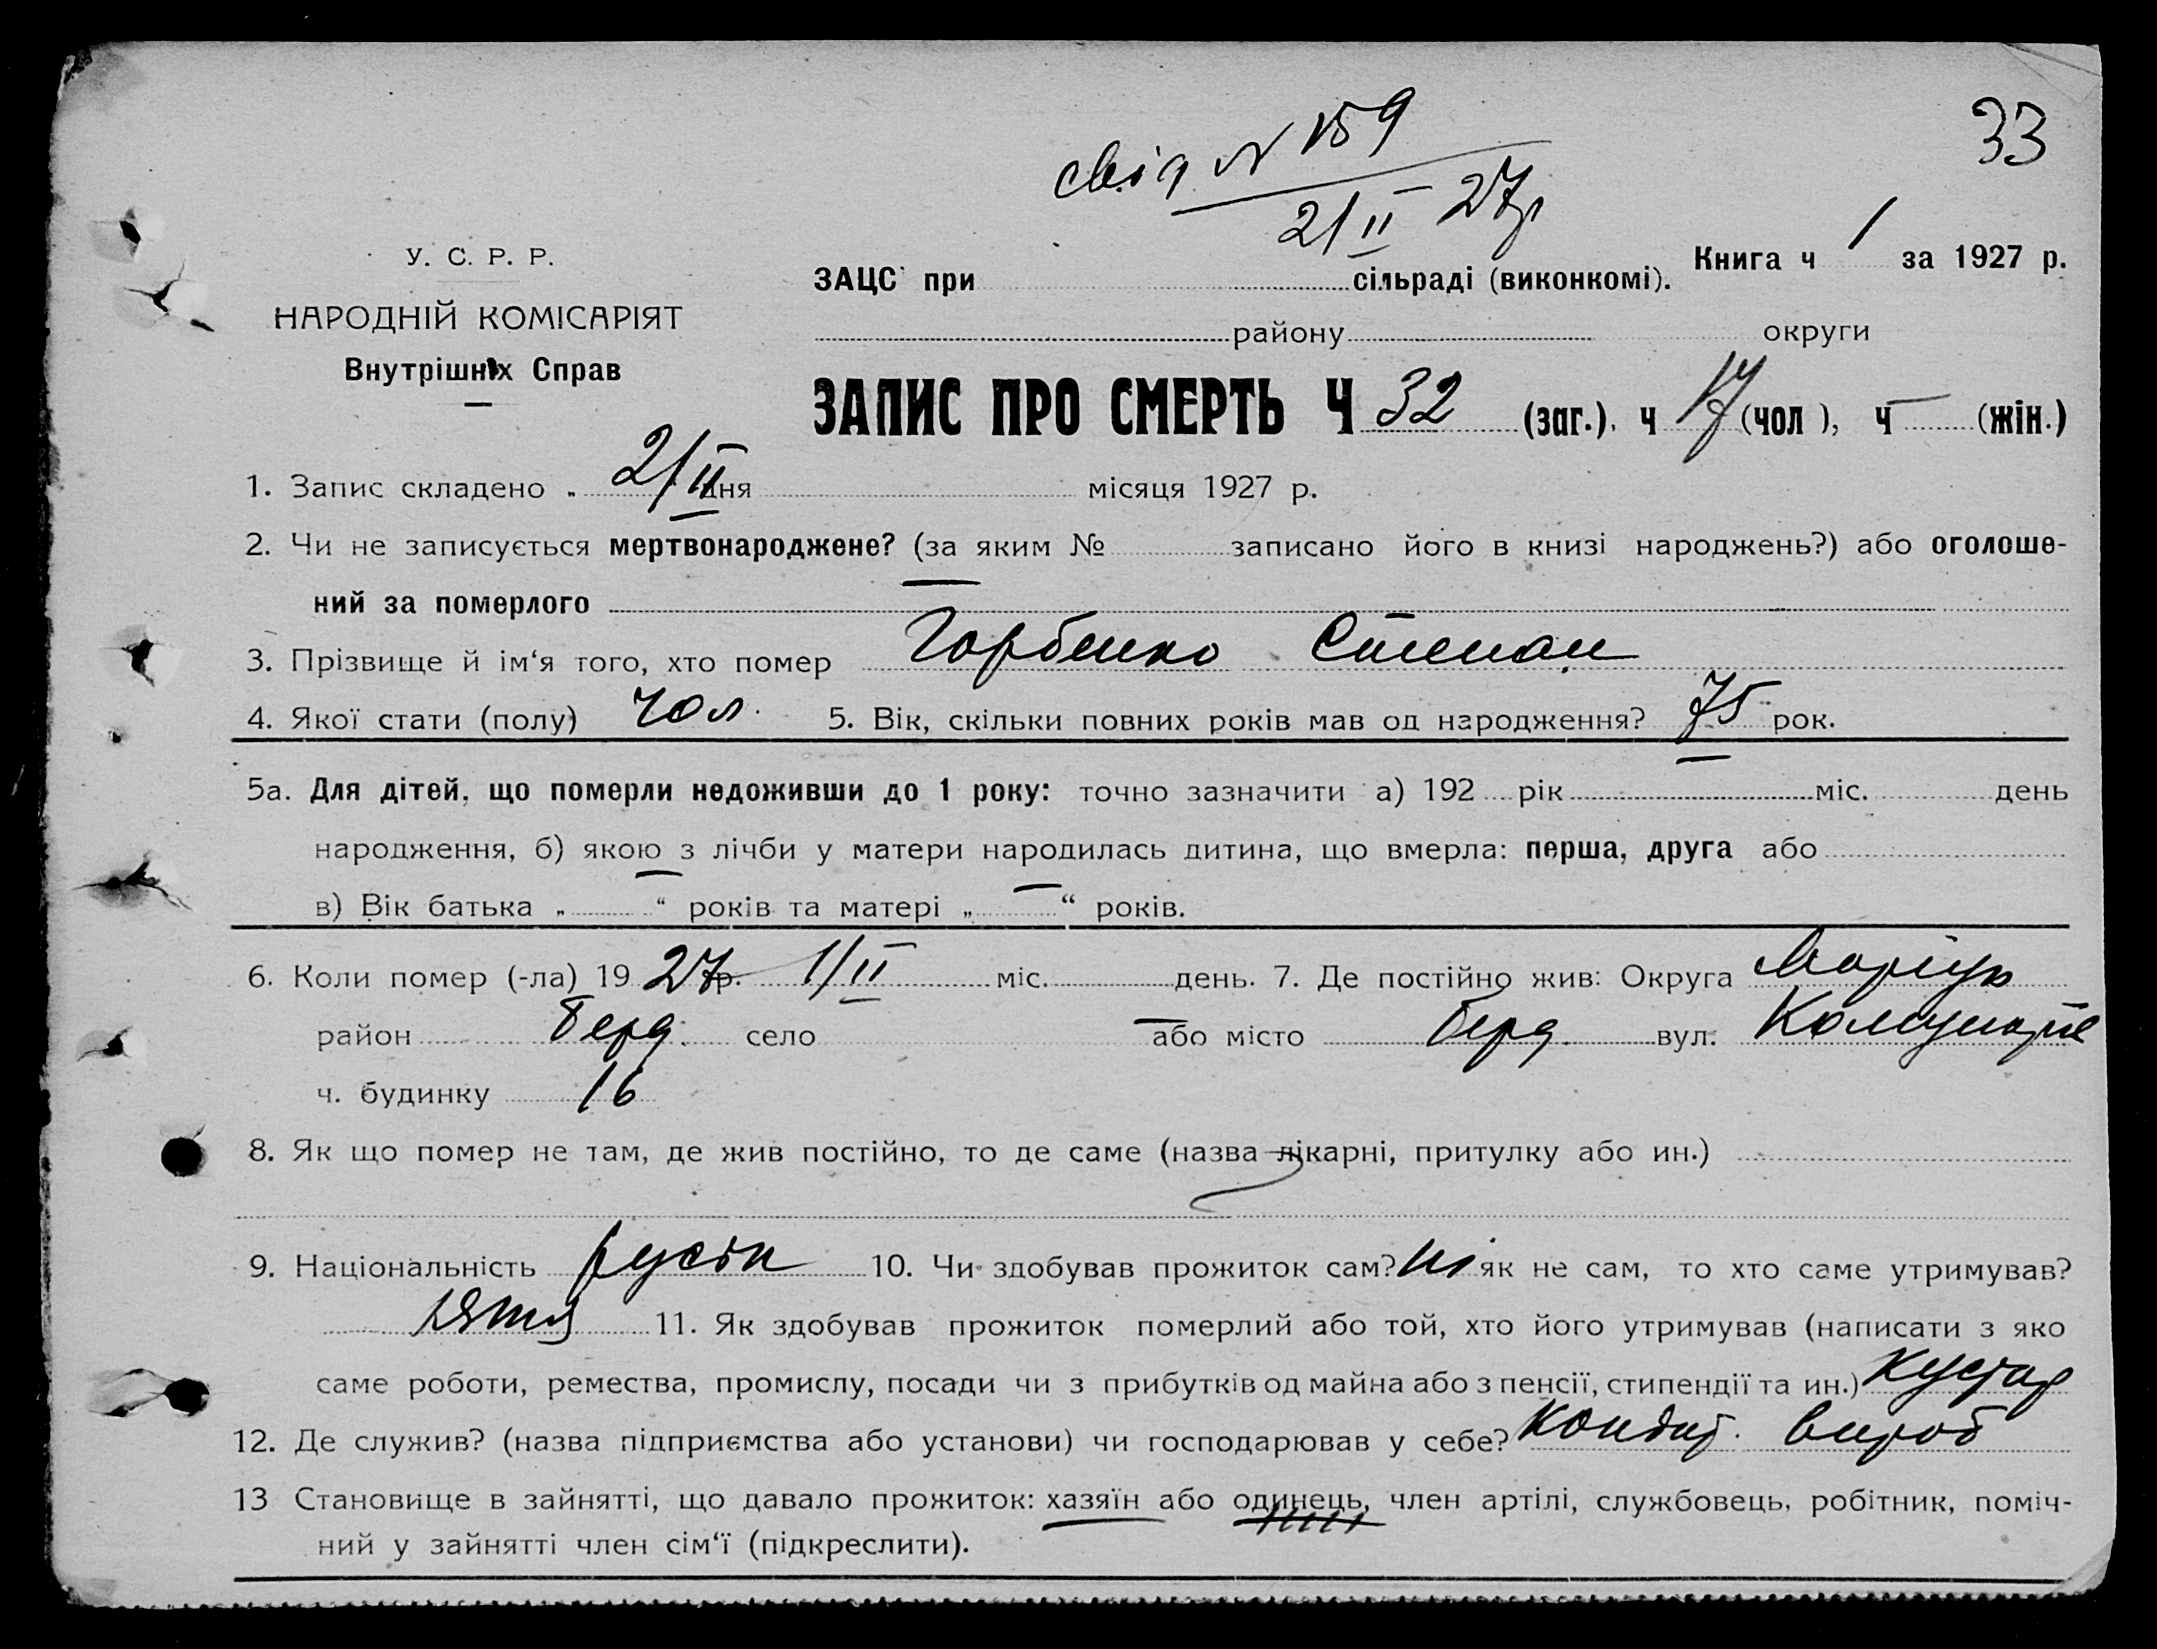 33
свід N 159
2/II 27р
У. С. Р. Р.
НАРОДНІЙ КОМІСАРІЯТ
Внутрішніх Справ
Книга ч 1 за 1927 р.
ЗАЦС при сільраді (виконкомі).
району округи
ЗАПИС ПРО СМЕРТЬ Ч 32 (заг.). ч 17 (чол), ч — (жін.)
1. Запис складено „ 2/II дня місяця 1927 р.
2. Чи не записується мертвонароджене? (за яким № записано його в книзі народжень?) або оголоше-
ний за померлого —
3. Прізвище й ім‘я того, хто помер Горбенко Степан
4. Якої стати (полу) чол. 5. Вік, скільки повних років мав од народження? 75 рок.
5а. Для дітей, що померли недоживши до 1 року: точно зазначити а) 192 рік — міс. день
народження, б) якою з лічби у матери народилась дитина, що вмерла: перша, друга або
в) Вік батька „ — “ років та матері „ — “ років.
6. Коли помер (-ла) 19 27р. 1/II міс. день. 7. Де постійно жив: Округа Маріуп
район Берд. село — або місто Берд. вул.
ч. будинку 16
8. Як що помер не там, де жив постійно, то де саме (назва лікарні, притулку або ин.)
9. Національність русск 10. Чи здобував прожиток сам? Ні як не сам, то хто саме утримував?
11. Як здобував прожиток померлий або той, хто його утримував (написати з яко
саме роботи, ремества, промислу, посади чи з прибутків од майна або з пенсії, стипендії та ин.) Кустар
12. Де служив? (назва підприємства або установи) чи господарював у себе? Кондит. вироб
13 Становище в зайнятті, що давало прожиток: хазяїн або одинець, член артілі, службовець, робітник, поміч-
ний у зайнятті член сім‘ї (підкреслити).